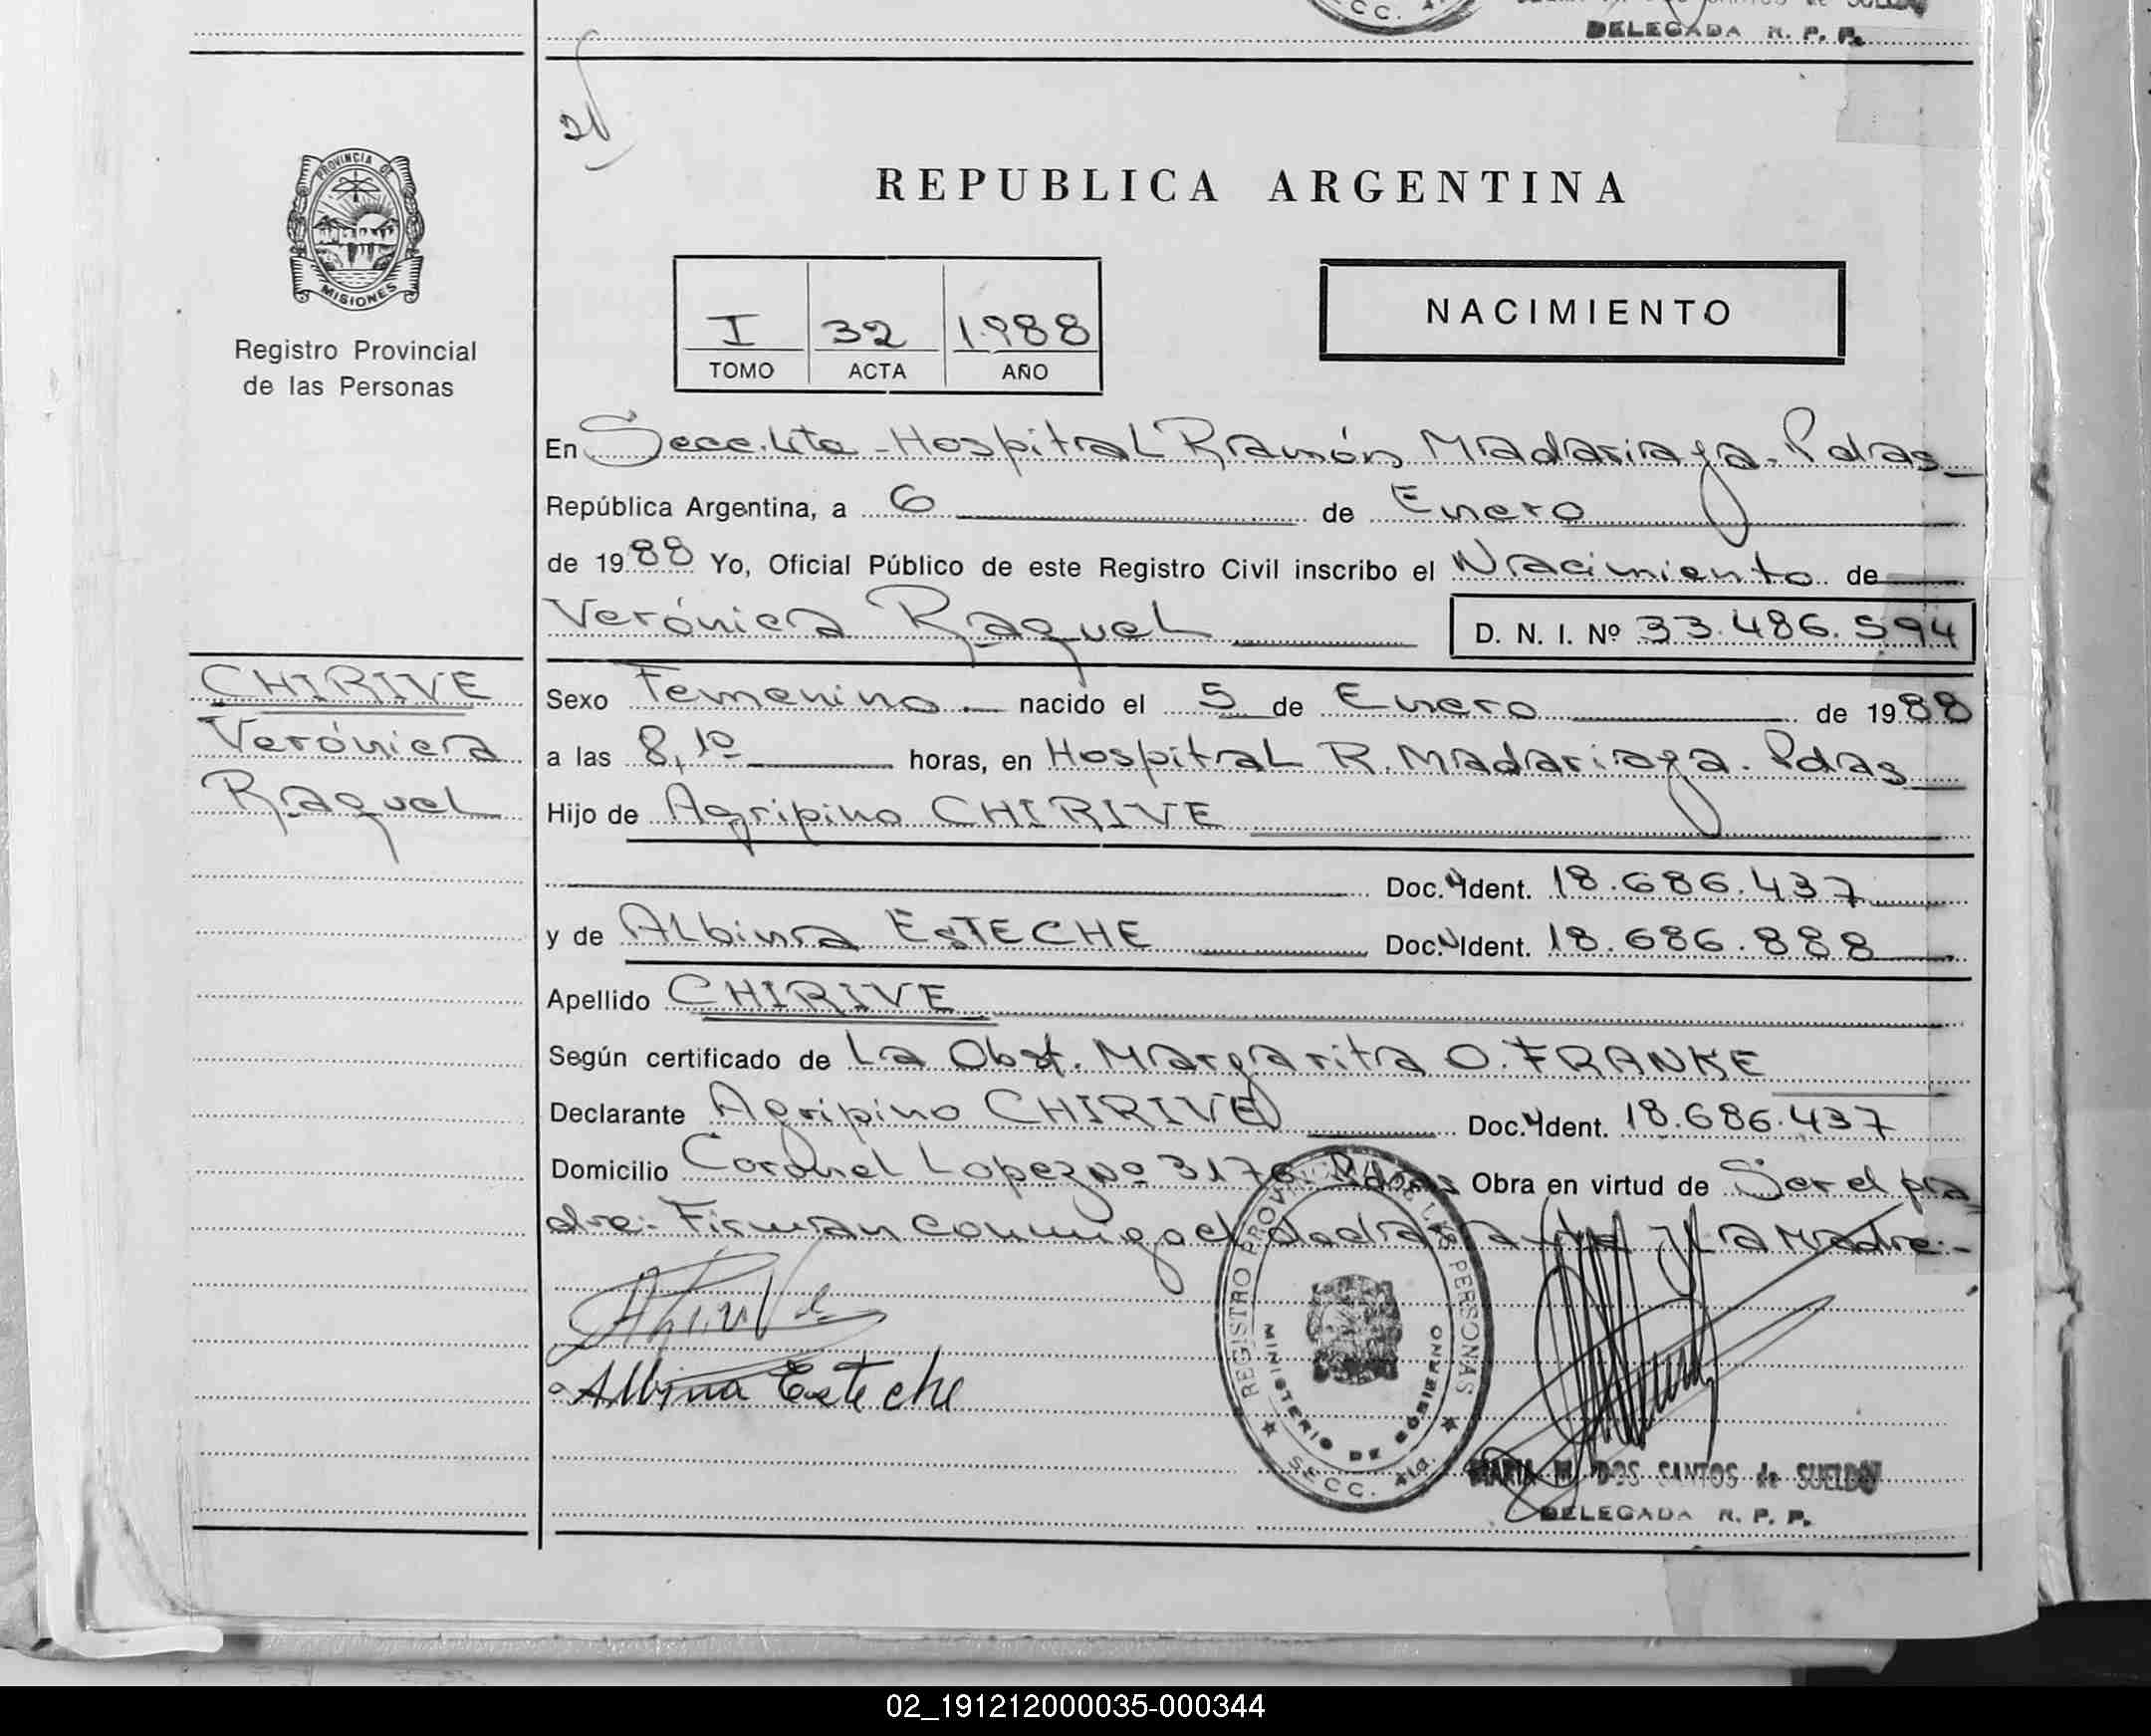 DELEGADA R. P. P.
PROVINCIA DE
MISIONES
Registro Provincial
de las Personas
REPUBLICA ARGENTINA
I 32 1.988
TOMO ACTA AÑO
NACIMIENTO
En Secc. 4ta - Hospital Ramón Madariaga - Pdas
República Argentina, a 6 de Enero
de 1988 Yo, Oficial Público de este Registro Civil inscribo el Nacimiento de
Verónica Raquel D. N. I. Nº 33.486.594
CHIRIVE
Verónica
Raquel
Sexo Femenino nacido el 5 de Enero de 1988
a las 8,10 horas, en Hospital R. Madariaga. Pdas
Hijo de Agripino CHIRIVE
Doc. Ident. 18.686.437
y de Albina ESTECHE Doc. Ident. 18.686.888
Apellido CHIRIVE
Según certificado de La Obst. Margarita O. FRANKE
Declarante Agripino CHIRIVE Doc. Ident. 18.686.437
Domicilio Coronel Lopez Nº 3176 Pdas Obra en virtud de Ser el pa
dre.- Firman conmigo el declarante y la Madre.-
Albina Esteche
REGISTRO PROVINCIAL DE LAS PERSONAS
MINISTERIO DE GOBIERNO
SECC. 4ta.
MARIA DOS SANTOS de SUELDO
DELEGADA R. P. P.
02_191212000035-000344